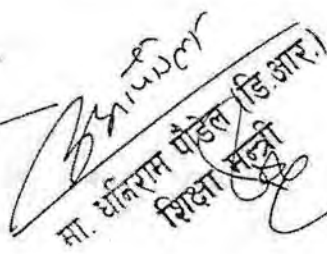 मा. धनिराम पौडेल (डि.आर.)
शिक्षा मन्त्री